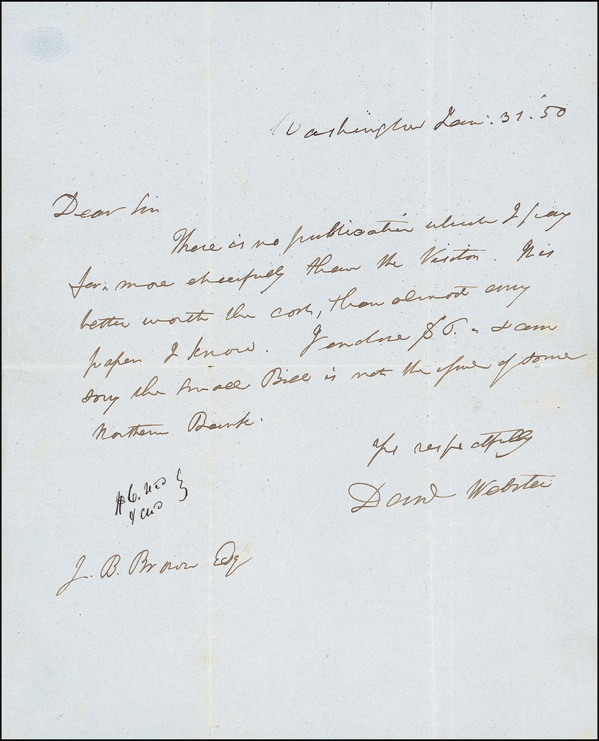 Washington Jan: 31. '50
Dear Sir
There is no publication which I pay
for, more cheerfully than the Visitor. It is
better worth the cost, than almost any
paper I know. I enclose $6. & am
sory the small Bill is not the issue of some
Northern Bank.
Yrs respectfully
Danl Webster
$6.
J. B. Brown Esq